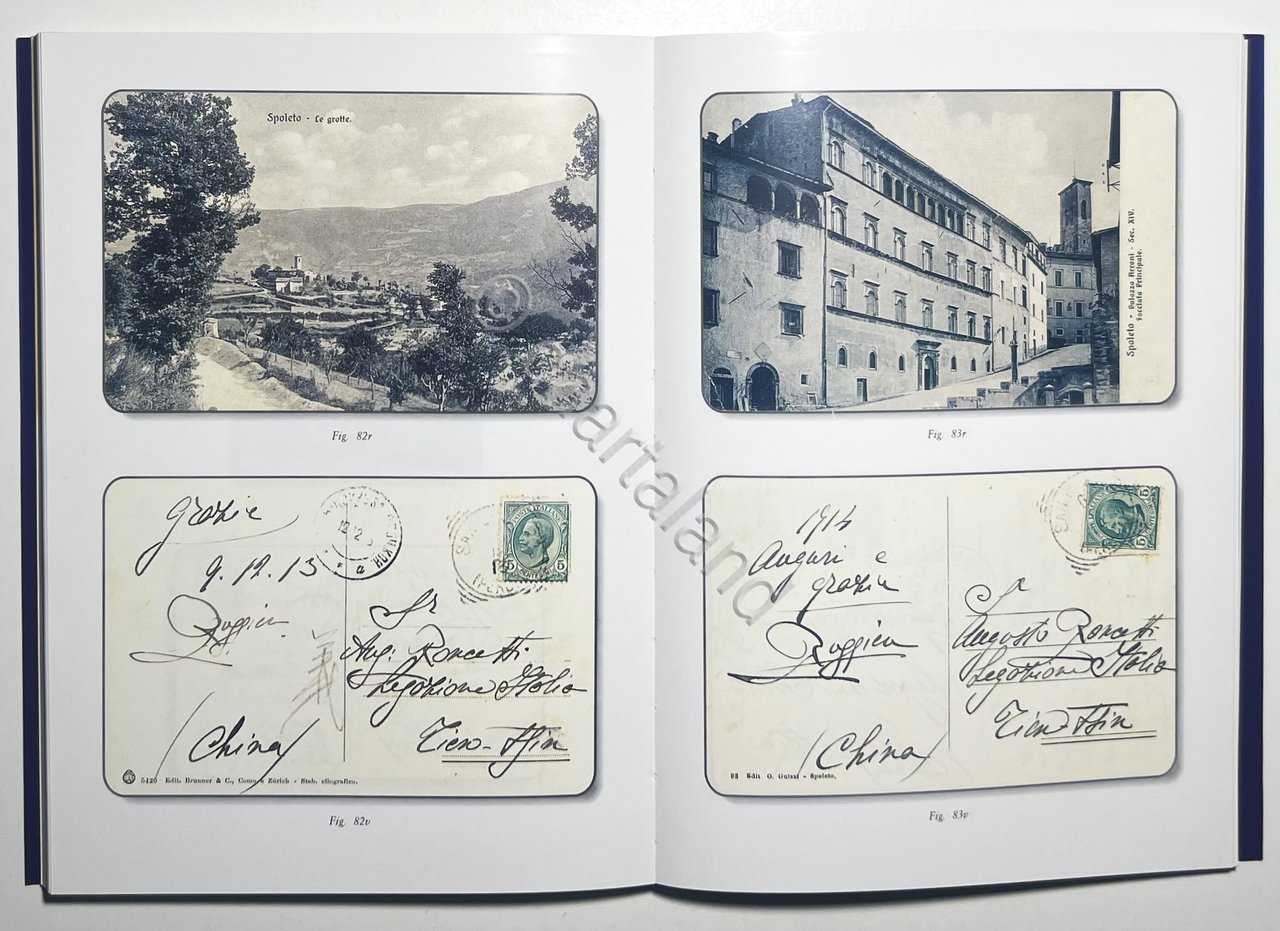 Spoleto - Le grotte.
Fig. 82r
Grazie
9.12.13
Ruggieri
(China)
12 12
HONGKONG
POSTE ITALIANE
5
Sr
Aug. Roncetti
Legazione Italia
Tien-Tsin
5420 Edit. Brunner & C., Como e Zürich - Stab. eliografico.
Fig. 82v
Spoleto - Palazzo Arroni - Sec. XIV.
Facciata Principale.
Fig. 83r
1914
Auguri e
grazie
Ruggieri
(China)
5
Sr
Augusto Roncetti
Legazione Italia
Tien-Tsin
93 Edit O. Guissi - Spoleto.
Fig. 83v
© artaland